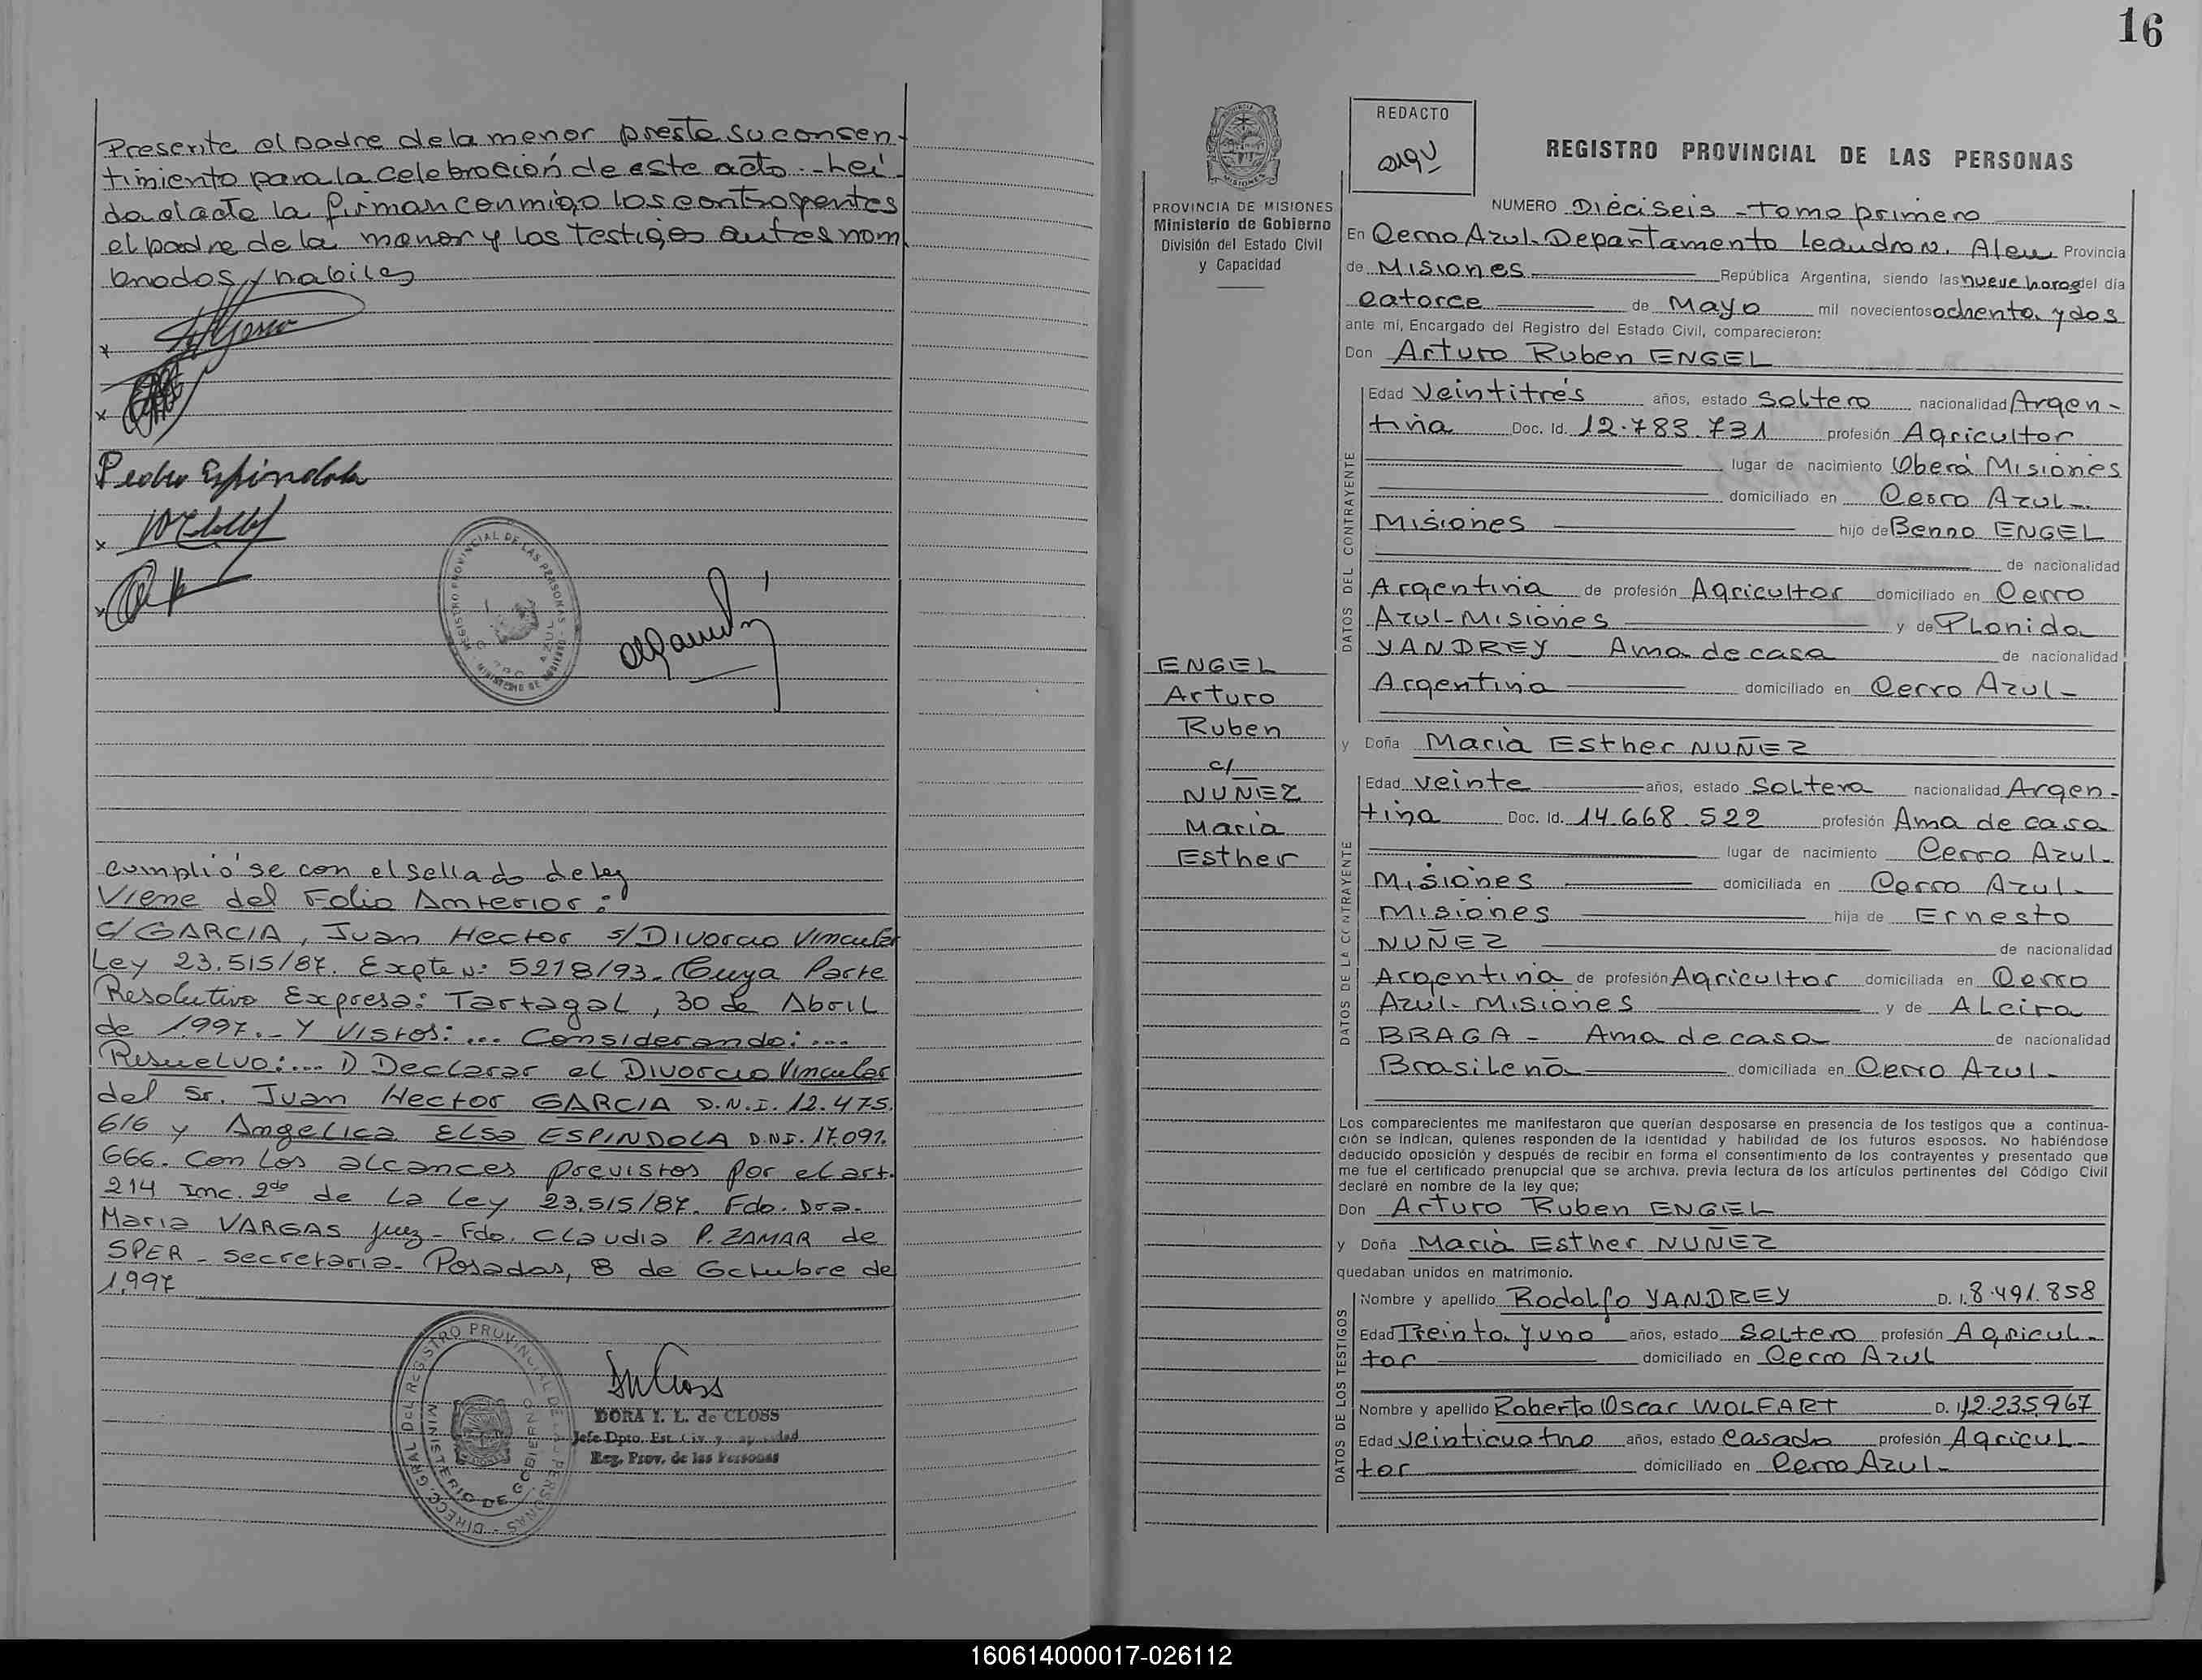 Presente el padre de la menor presta su consen-
timiento para la celebración de este acto.- Leí
da el acta la firman conmigo los contrayentes
el padre de la menor y los testigos antes nom
brados y habiles
x
x
Pedro Espindola
x
x
REGISTRO PROVINCIAL DE LAS PERSONAS
MINISTERIO DE GOBIERNO
cumplió se con el sellado de ley
Viene del Folio Anterior:
c/ GARCIA, Juan Hector s/ Divorcio Vincular
Ley 23.515/87. Expte Nº 5218/93. Cuya Parte
Resolutiva Expresa: Tartagal, 30 de Abril
de 1.997.- Y Vistos: ... Considerando: ...
Resuelvo: ... I) Declarar el Divorcio Vincular
del Sr. Juan Hector GARCIA D.N.I. 12.475.
616 y Angelica Elsa ESPINDOLA D.N.I. 17.091.
666. Con los alcances previstos por el art.
214 Inc. 2do de la Ley 23.515/87. Fdo. Dra.
Maria VARGAS Juez - Fdo. Claudia P. ZAMAR de
SPER - Secretaria. Posadas, 8 de Octubre de
1.997
DIRECC. GRAL. DEL REGISTRO PROVINCIAL DE LAS PERSONAS
MINISTERIO DE GOBIERNO
DORA I. L. de CLOSS
Jefe Dpto. Est. Civ. y Capacidad
Reg. Prov. de las Personas
16
PROVINCIA DE MISIONES
Ministerio de Gobierno
División del Estado Civil
y Capacidad
ENGEL
Arturo
Ruben
c/
NUÑEZ
Maria
Esther
REDACTO
REGISTRO PROVINCIAL DE LAS PERSONAS
NUMERO Dieciseis - Tomo primero
En Cerro Azul. Departamento Leandro N. Alem Provincia
de Misiones República Argentina, siendo las nueve horas del día
catorce de Mayo mil novecientos ochenta y dos
ante mí, Encargado del Registro del Estado Civil, comparecieron:
Don Arturo Ruben ENGEL
DATOS DEL CONTRAYENTE
Edad Veintitrés años, estado Soltero nacionalidad Argen-
tina Doc. Id. 12.783.731 profesión Agricultor
lugar de nacimiento Oberá Misiones
domiciliado en Cerro Azul-
Misiones hijo de Benno ENGEL
de nacionalidad
Argentina de profesión Agricultor domiciliado en Cerro
Azul-Misiones y de Florida
YANDREY - Ama de casa de nacionalidad
Argentina domiciliado en Cerro Azul-
y Doña Maria Esther NUÑEZ
DATOS DE LA CONTRAYENTE
Edad veinte años, estado Soltera nacionalidad Argen-
tina Doc. Id. 14.668.522 profesión Ama de casa
lugar de nacimiento Cerro Azul-
Misiones domiciliada en Cerro Azul-
Misiones hija de Ernesto
NUÑEZ de nacionalidad
Argentina de profesión Agricultor domiciliada en Cerro
Azul- Misiones y de Alcira
BRAGA - Ama de casa de nacionalidad
Brasileña domiciliada en Cerro Azul-
Los comparecientes me manifestaron que querían desposarse en presencia de los testigos que a continua-
ción se indican, quienes responden de la identidad y habilidad de los futuros esposos. No habiéndose
deducido oposición y después de recibir en forma el consentimiento de los contrayentes y presentado que
me fue el certificado prenupcial que se archiva. previa lectura de los artículos pertinentes del Código Civil
declaré en nombre de la ley que;
Don Arturo Ruben ENGEL
y Doña Maria Esther NUÑEZ
quedaban unidos en matrimonio.
DATOS DE LOS TESTIGOS
Nombre y apellido Rodolfo YANDREY D. I. 8.491.858
Edad Treinta y uno años, estado Soltero profesión Agricul-
tor domiciliado en Cerro Azul
Nombre y apellido Roberto Oscar WOLFART D. I. 12.235.967
Edad Veinticuatro años, estado Casado profesión Agricul-
tor domiciliado en Cerro Azul-
160614000017-026112